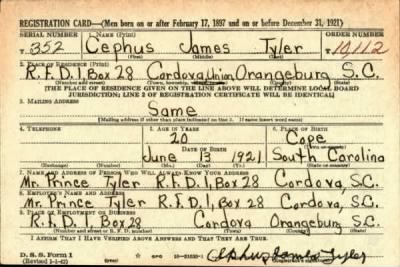 REGISTRATION CARD—(Men born on or after February 17, 1897 and on or before December 31, 1921)
SERIAL NUMBER 1. NAME (Print) ORDER NUMBER
T 352 Cephus James Tyler 10112
(First) (Middle) (Last)
2. PLACE OF RESIDENCE (Print)
R.F.D.1, Box 28 Cordova Union Orangeburg S.C.
[THE PLACE OF RESIDENCE GIVEN ON THE LINE ABOVE WILL DETERMINE LOCAL BOARD
JURISDICTION; LINE 2 OF REGISTRATION CERTIFICATE WILL BE IDENTICAL]
3. MAILING ADDRESS
Same
[Mailing address if other than place indicated on line 2. If same insert word same]
4. TELEPHONE 5. AGE IN YEARS 6. PLACE OF BIRTH
20 Cope
DATE OF BIRTH (Town or county)
June 13 1921 South Carolina
(Exchange) (Number) (Mo.) (Day) (Yr.) (State or country)
7. NAME AND ADDRESS OF PERSON WHO WILL ALWAYS KNOW YOUR ADDRESS
Mr. Prince Tyler R.F.D.1, Box 28 Cordova, S.C.
8. EMPLOYER'S NAME AND ADDRESS
Mr. Prince Tyler R.F.D.1, Box 28 Cordova, S.C.
9. PLACE OF EMPLOYMENT OR BUSINESS
R.F.D.1, Box 28 Cordova Orangeburg S.C.
(Number and street or R. F. D. number) (Town) (County) (State)
I AFFIRM THAT I HAVE VERIFIED ABOVE ANSWERS AND THAT THEY ARE TRUE.
D. S. S. Form 1
(Revised 1-1-42) Cephus James Tyler